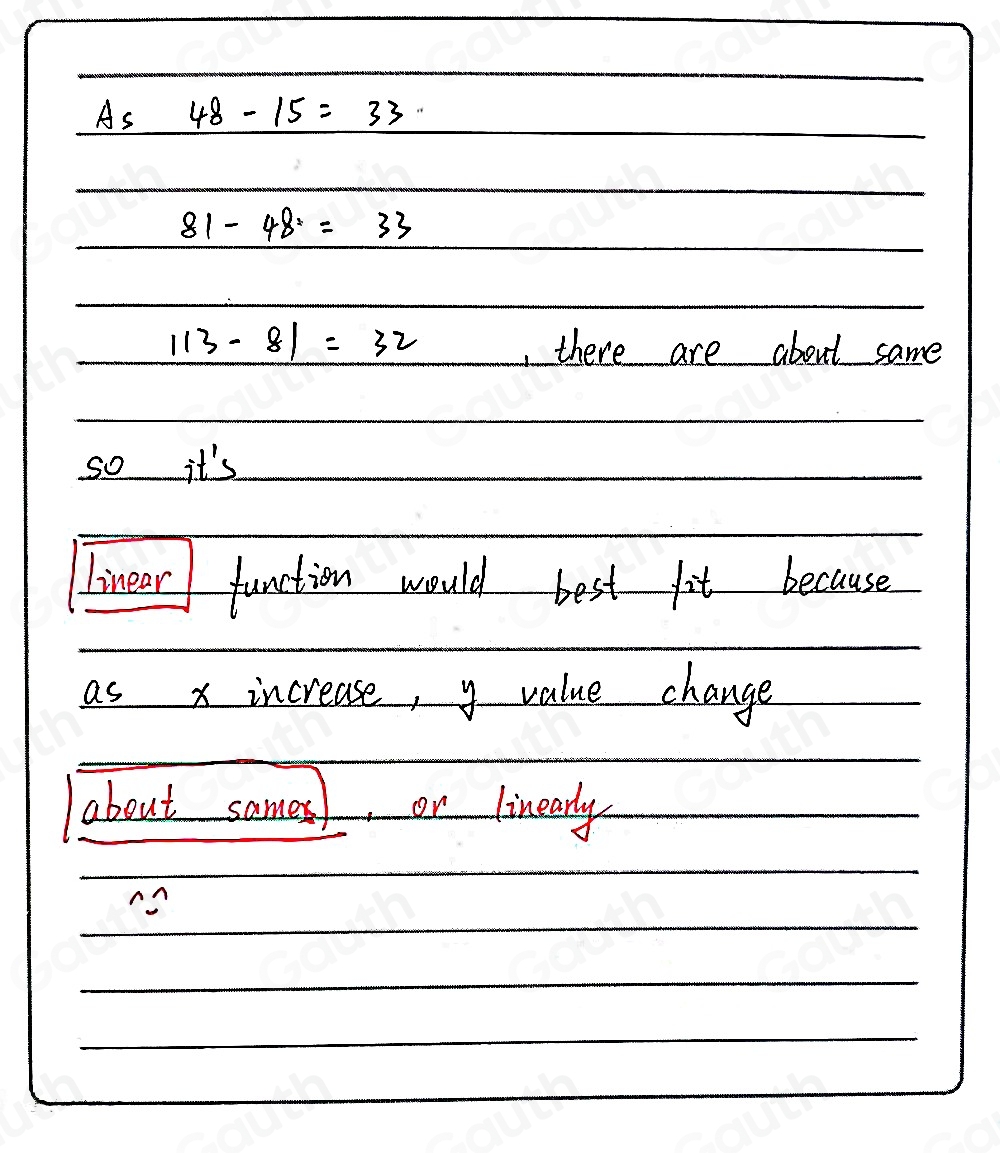 As 48 - 15 = 33
81 - 48 = 33
113 - 81 = 32 , there are about same
so it's
linear function would best fit because
as x increase, y value change
about same, or linearly